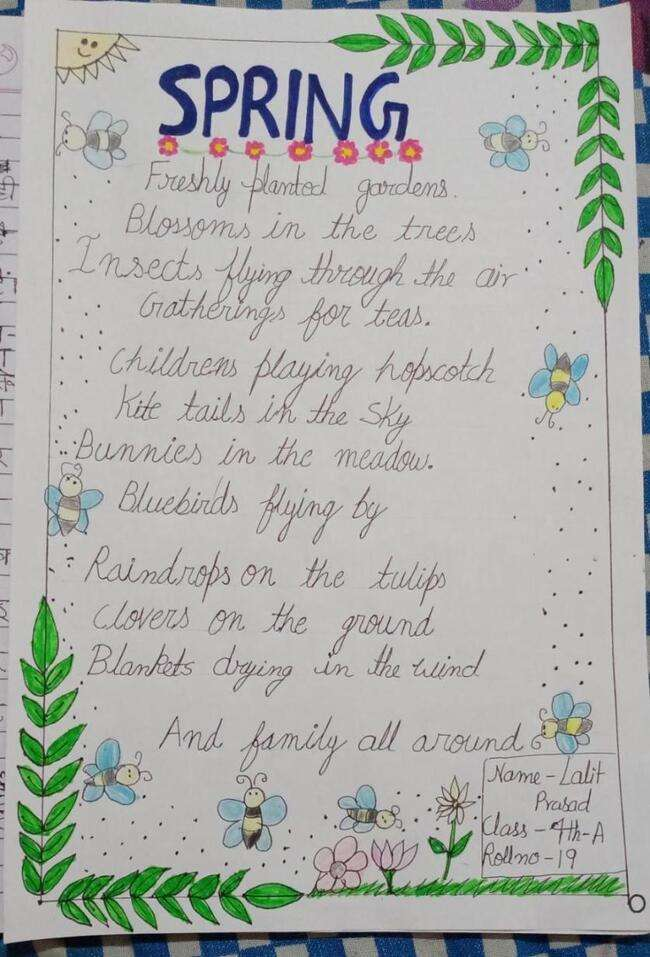 SPRING
Freshly planted gardens.
Blossoms in the trees
Insects flying through the air
Gatherings for teas.
Childrens playing hopscotch
Kite tails in the Sky
Bunnies in the meadow.
Bluebirds flying by
Raindrops on the tulips
Clovers on the ground
Blankets drying in the wind
And family all around
Name - Lalit
Prasad
Class - 4th-A
Rollno - 19